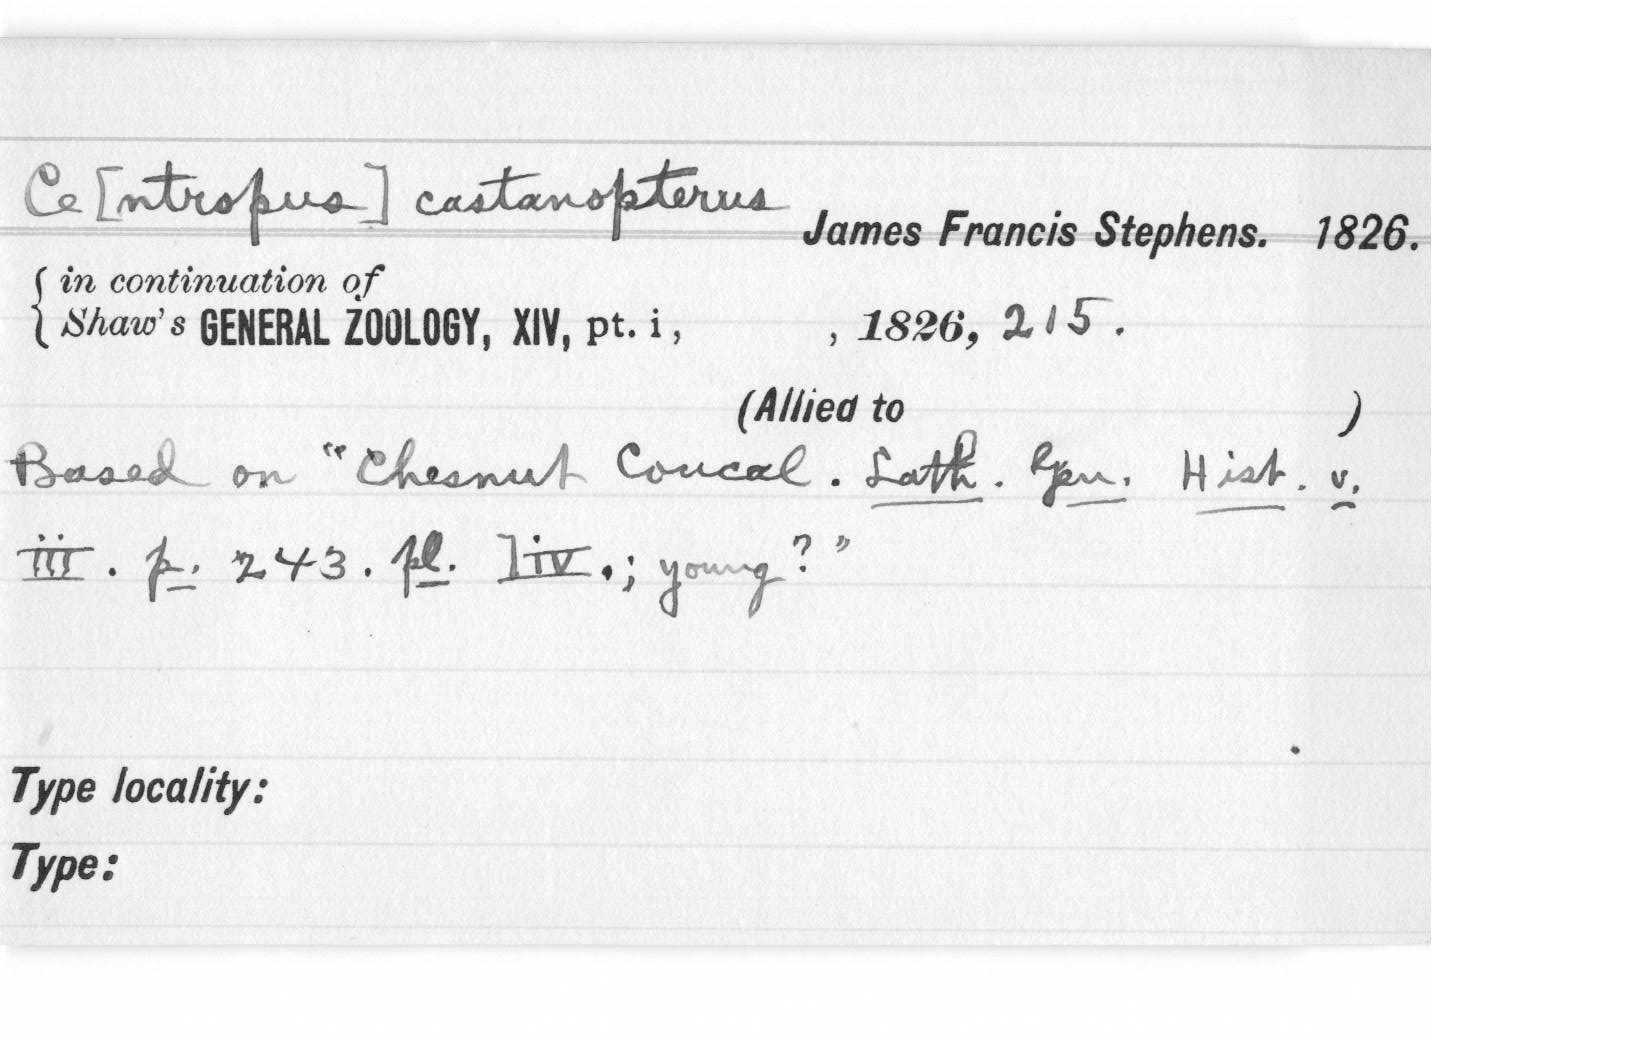 Ce[ntropus] castanopterus James Francis Stephens. 1826.
{ in continuation of
Shaw's GENERAL ZOOLOGY, XIV, pt. i, , 1826, 215.
(Allied to )
Based on "Chesnut Coucal. Lath. Gen. Hist. v.
iii. p. 243. pl. liv.; young?"
Type locality:
Type: